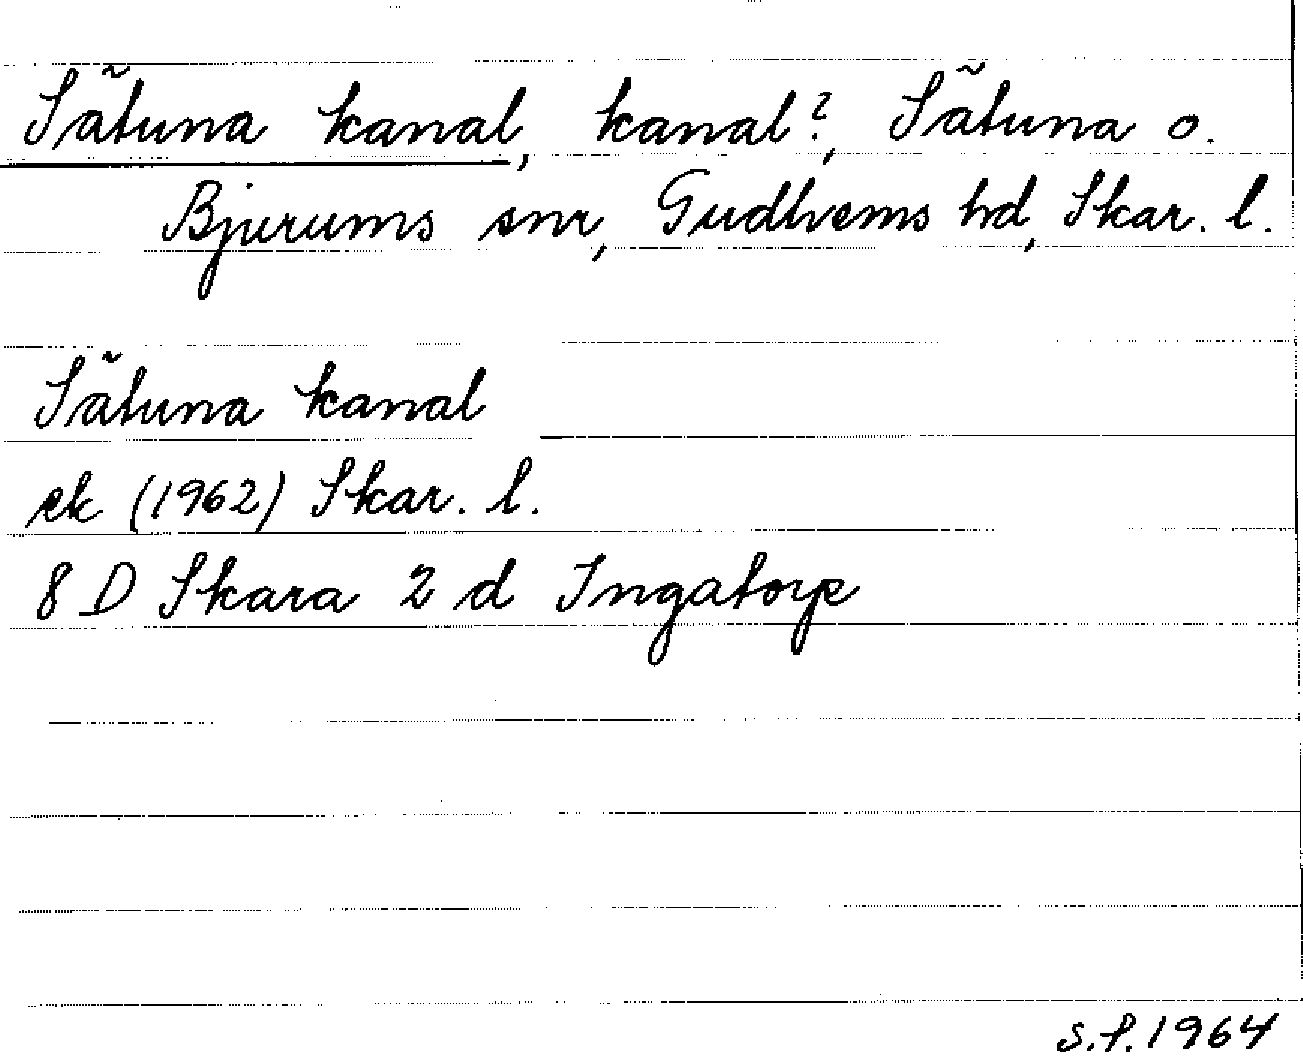 Sätuna kanal, kanal?, Sätuna o.
Bjurums snr, Gudhems hd, Skar. l.
Sätuna kanal
ek (1962) Skar. l.
8 D Skara 2 d Ingatorp
S.P. 1964